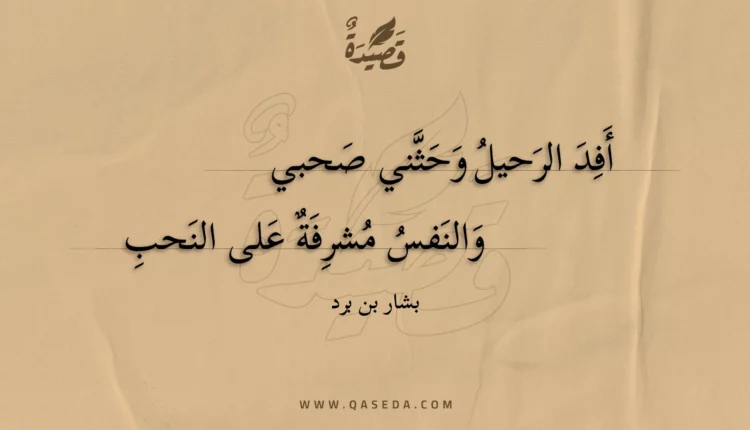 قَصِيدَةٌ
أَفِدَ الرَحيلُ وَحَثَّني صَحبي
وَالنَفسُ مُشرِفَةٌ عَلى النَحبِ
بشار بن برد
WWW.QASEDA.COM